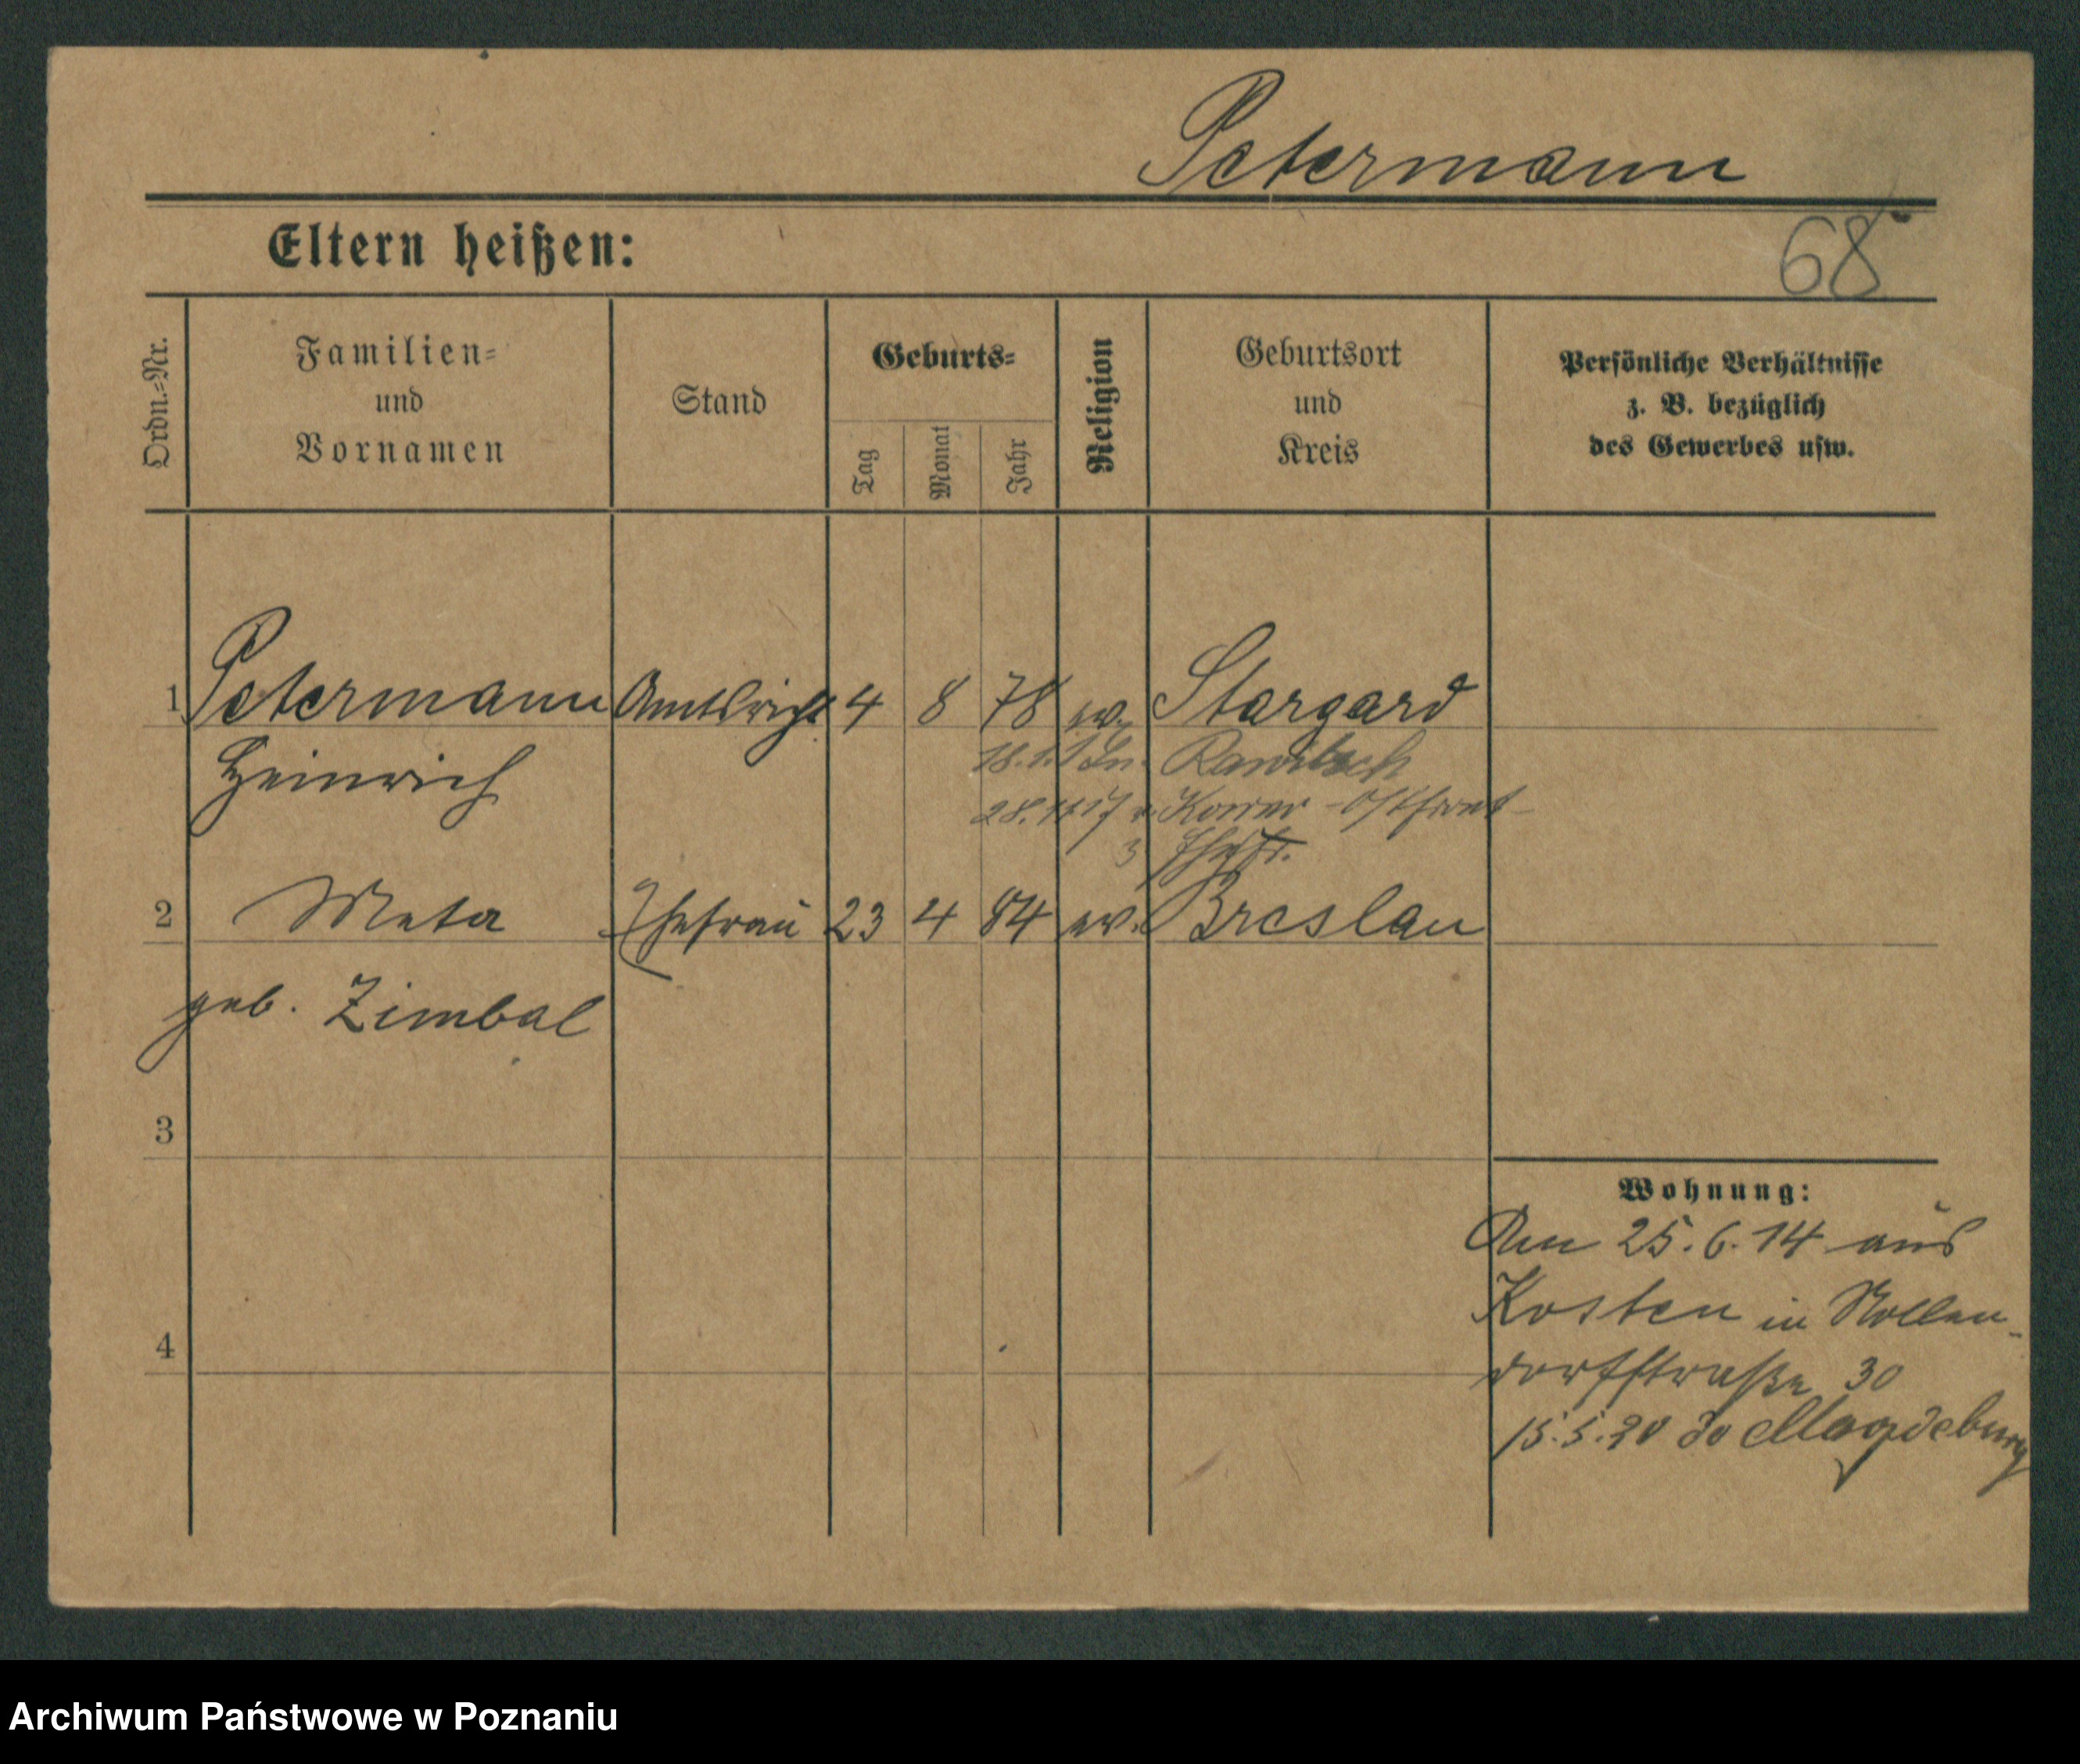 Petermann
Eltern heißen:
68
Ordn.-Nr.
Familien-
und
Vornamen
Stand
Geburts-
Tag
Monat
Jahr
Religion
Geburtsort
und
Kreis
Persönliche Verhältnisse
z. B. bezüglich
des Gewerbes usw.
1 Petermann Amtsricht. 4 8 78 ev. Stargard
Heinrich
Rawitsch
Ostfront
2 Meta Ehefrau 23 4 84 ev. Breslau
geb. Zimbal
3
4
Wohnung:
Am 25.6.14 aus
Kosten in Nollen-
dorfstraße 30
15.5.20 Magdeburg
Archiwum Państwowe w Poznaniu